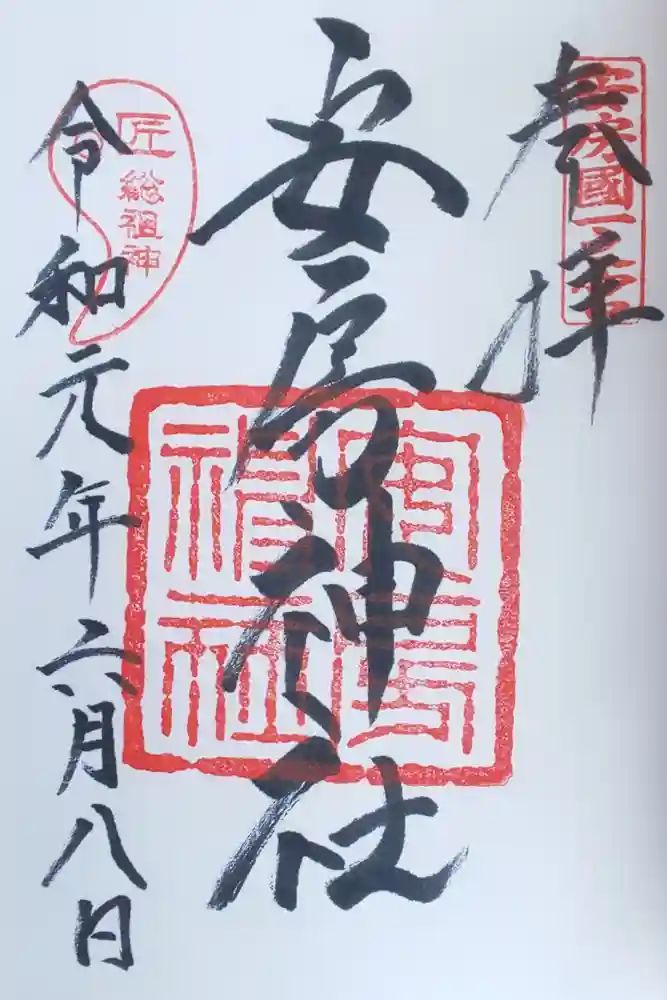 奉拝
安房國一之宮
安房神社
安房神社
令和元年六月八日
匠
総祖神